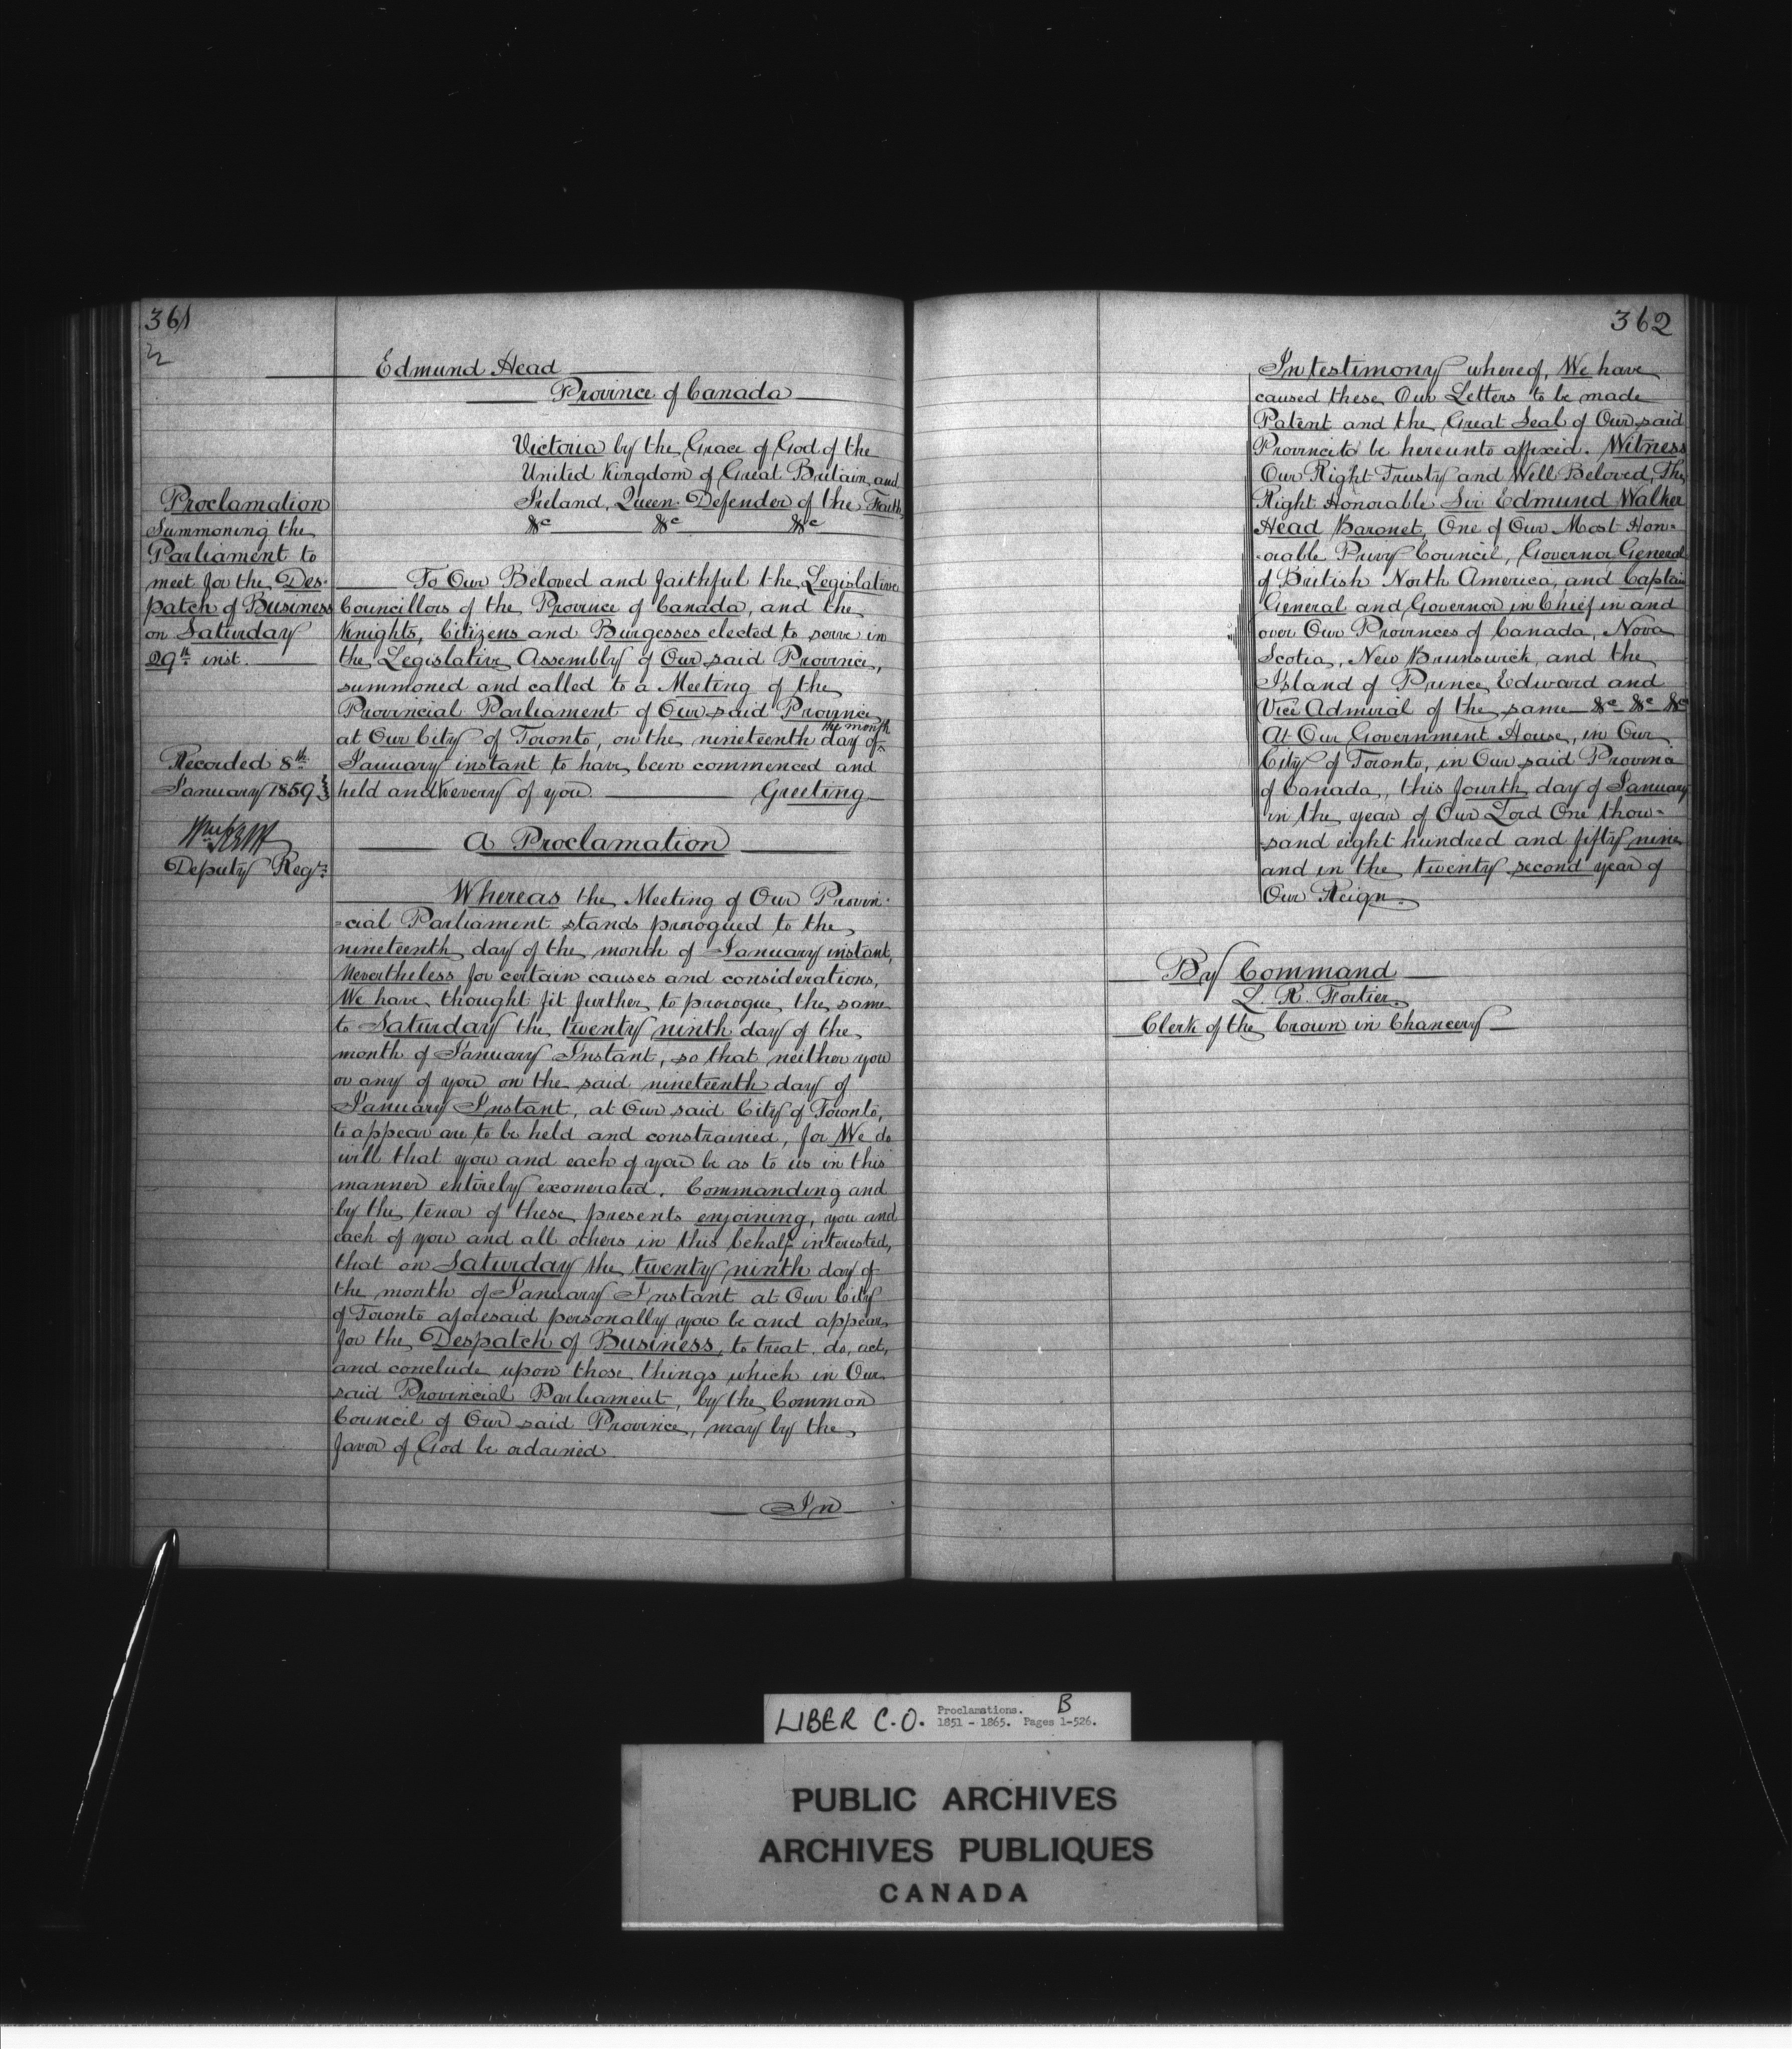 361
Edmund Head
Province of Canada
Victoria by the Grace of God of the
United Kingdom of Great Britain and
Ireland, Queen Defender of the Faith
&c &c &c
Proclamation
Summoning the
Parliament to
meet for the Des-
patch of Business
on Saturday
29th inst.
Recorded 8th
January 1859
Deputy Regr
To Our Beloved and faithful the Legislative
Councillors of the Province of Canada, and the
Knights, Citizens and Burgesses elected to serve in
the Legislative Assembly of Our said Province,
summoned and called to a Meeting of the
Provincial Parliament of Our said Province
at Our City of Toronto, on the nineteenth day of the month
January instant to have been commenced and
held and to every of you Greeting
A Proclamation
Whereas the Meeting of Our Provin-
=cial Parliament stands prorogued to the
nineteenth day of the month of January instant,
Nevertheless for certain causes and considerations,
We have thought fit further to prorogue the same
to Saturday the twenty ninth day of the
month of January Instant, so that neither you
or any of you on the said nineteenth day of
January Instant, at Our said City of Toronto,
to appear are to be held and constrained, for We do
will that you and each of you be as to us in this
manner entirely exonerated. Commanding and
by the tenor of these presents enjoining, you and
each of you and all others in this behalf interested,
that on Saturday the twenty ninth day of
the month of January Instant at Our City
of Toronto aforesaid personally you be and appear,
for the Despatch of Business, to treat, do, act,
and conclude upon those things which in Our
said Provincial Parliament, by the Common
Council of Our said Province, may by the
favor of God be ordained
In
362
In testimony whereof, We have
caused these Our Letters to be made
Patent and the Great Seal of Our said
Province to be hereunto affixed. Witness
Our Right Trusty and Well Beloved, The
Right Honorable Sir Edmund Walker
Head Baronet, One of Our Most Hon-
-orable Privy Council, Governor General
of British North America, and Captain
General and Governor in Chief in and
over Our Provinces of Canada, Nova
Scotia, New Brunswick, and the
Island of Prince Edward and
Vice Admiral of the same &c &c &c
At Our Government House, in Our
City of Toronto, in Our said Province
of Canada, this fourth day of January
in the year of Our Lord One thou-
-sand eight hundred and fifty nine
and in the twenty second year of
Our Reign.
By Command
L. R. Fortier.
Clerk of the Crown in Chancery
LIBER C.O. Proclamations. B
1851 - 1865. Pages 1-526.
PUBLIC ARCHIVES
ARCHIVES PUBLIQUES
CANADA